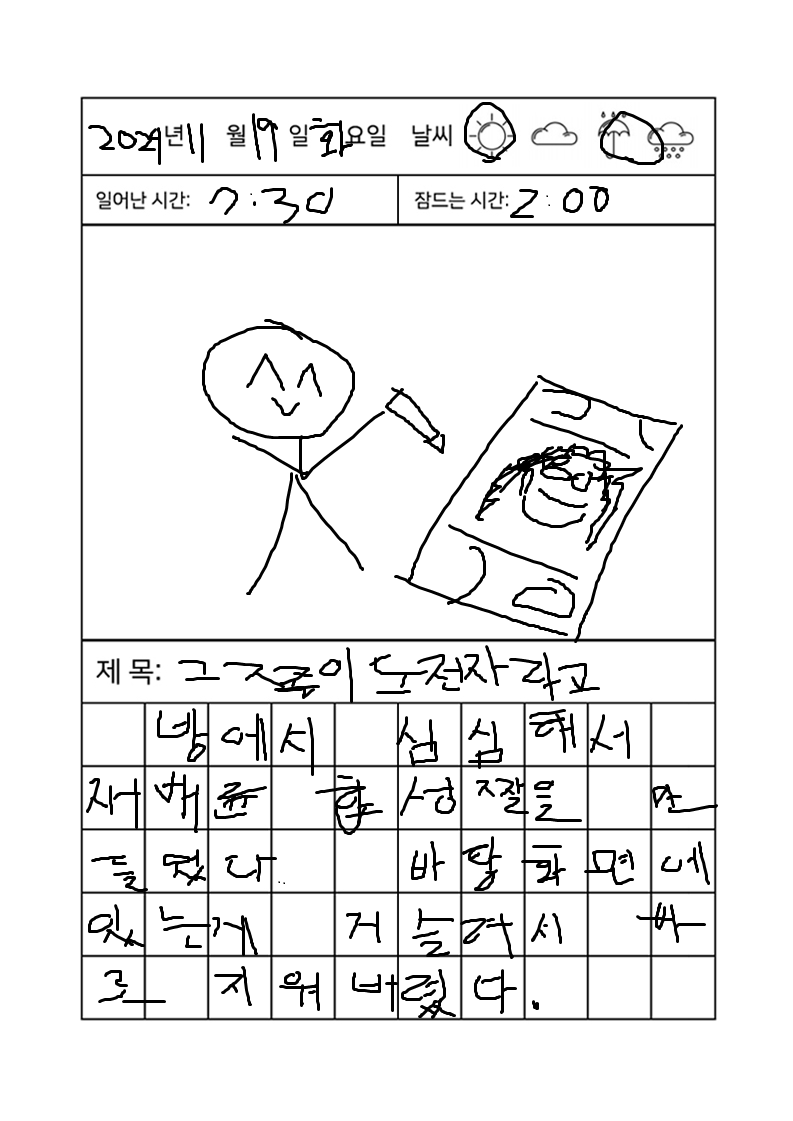 2024년 11월 19일 화요일 날씨
일어난 시간: 7:30 잠드는 시간: 2:00
제 목: 그 지름이 도전자라고
방에서 심심해서
재배륜 합성짤을 만
들었다. 바탕화면에
있는게 거늘려서 바
로 지워버렸다.